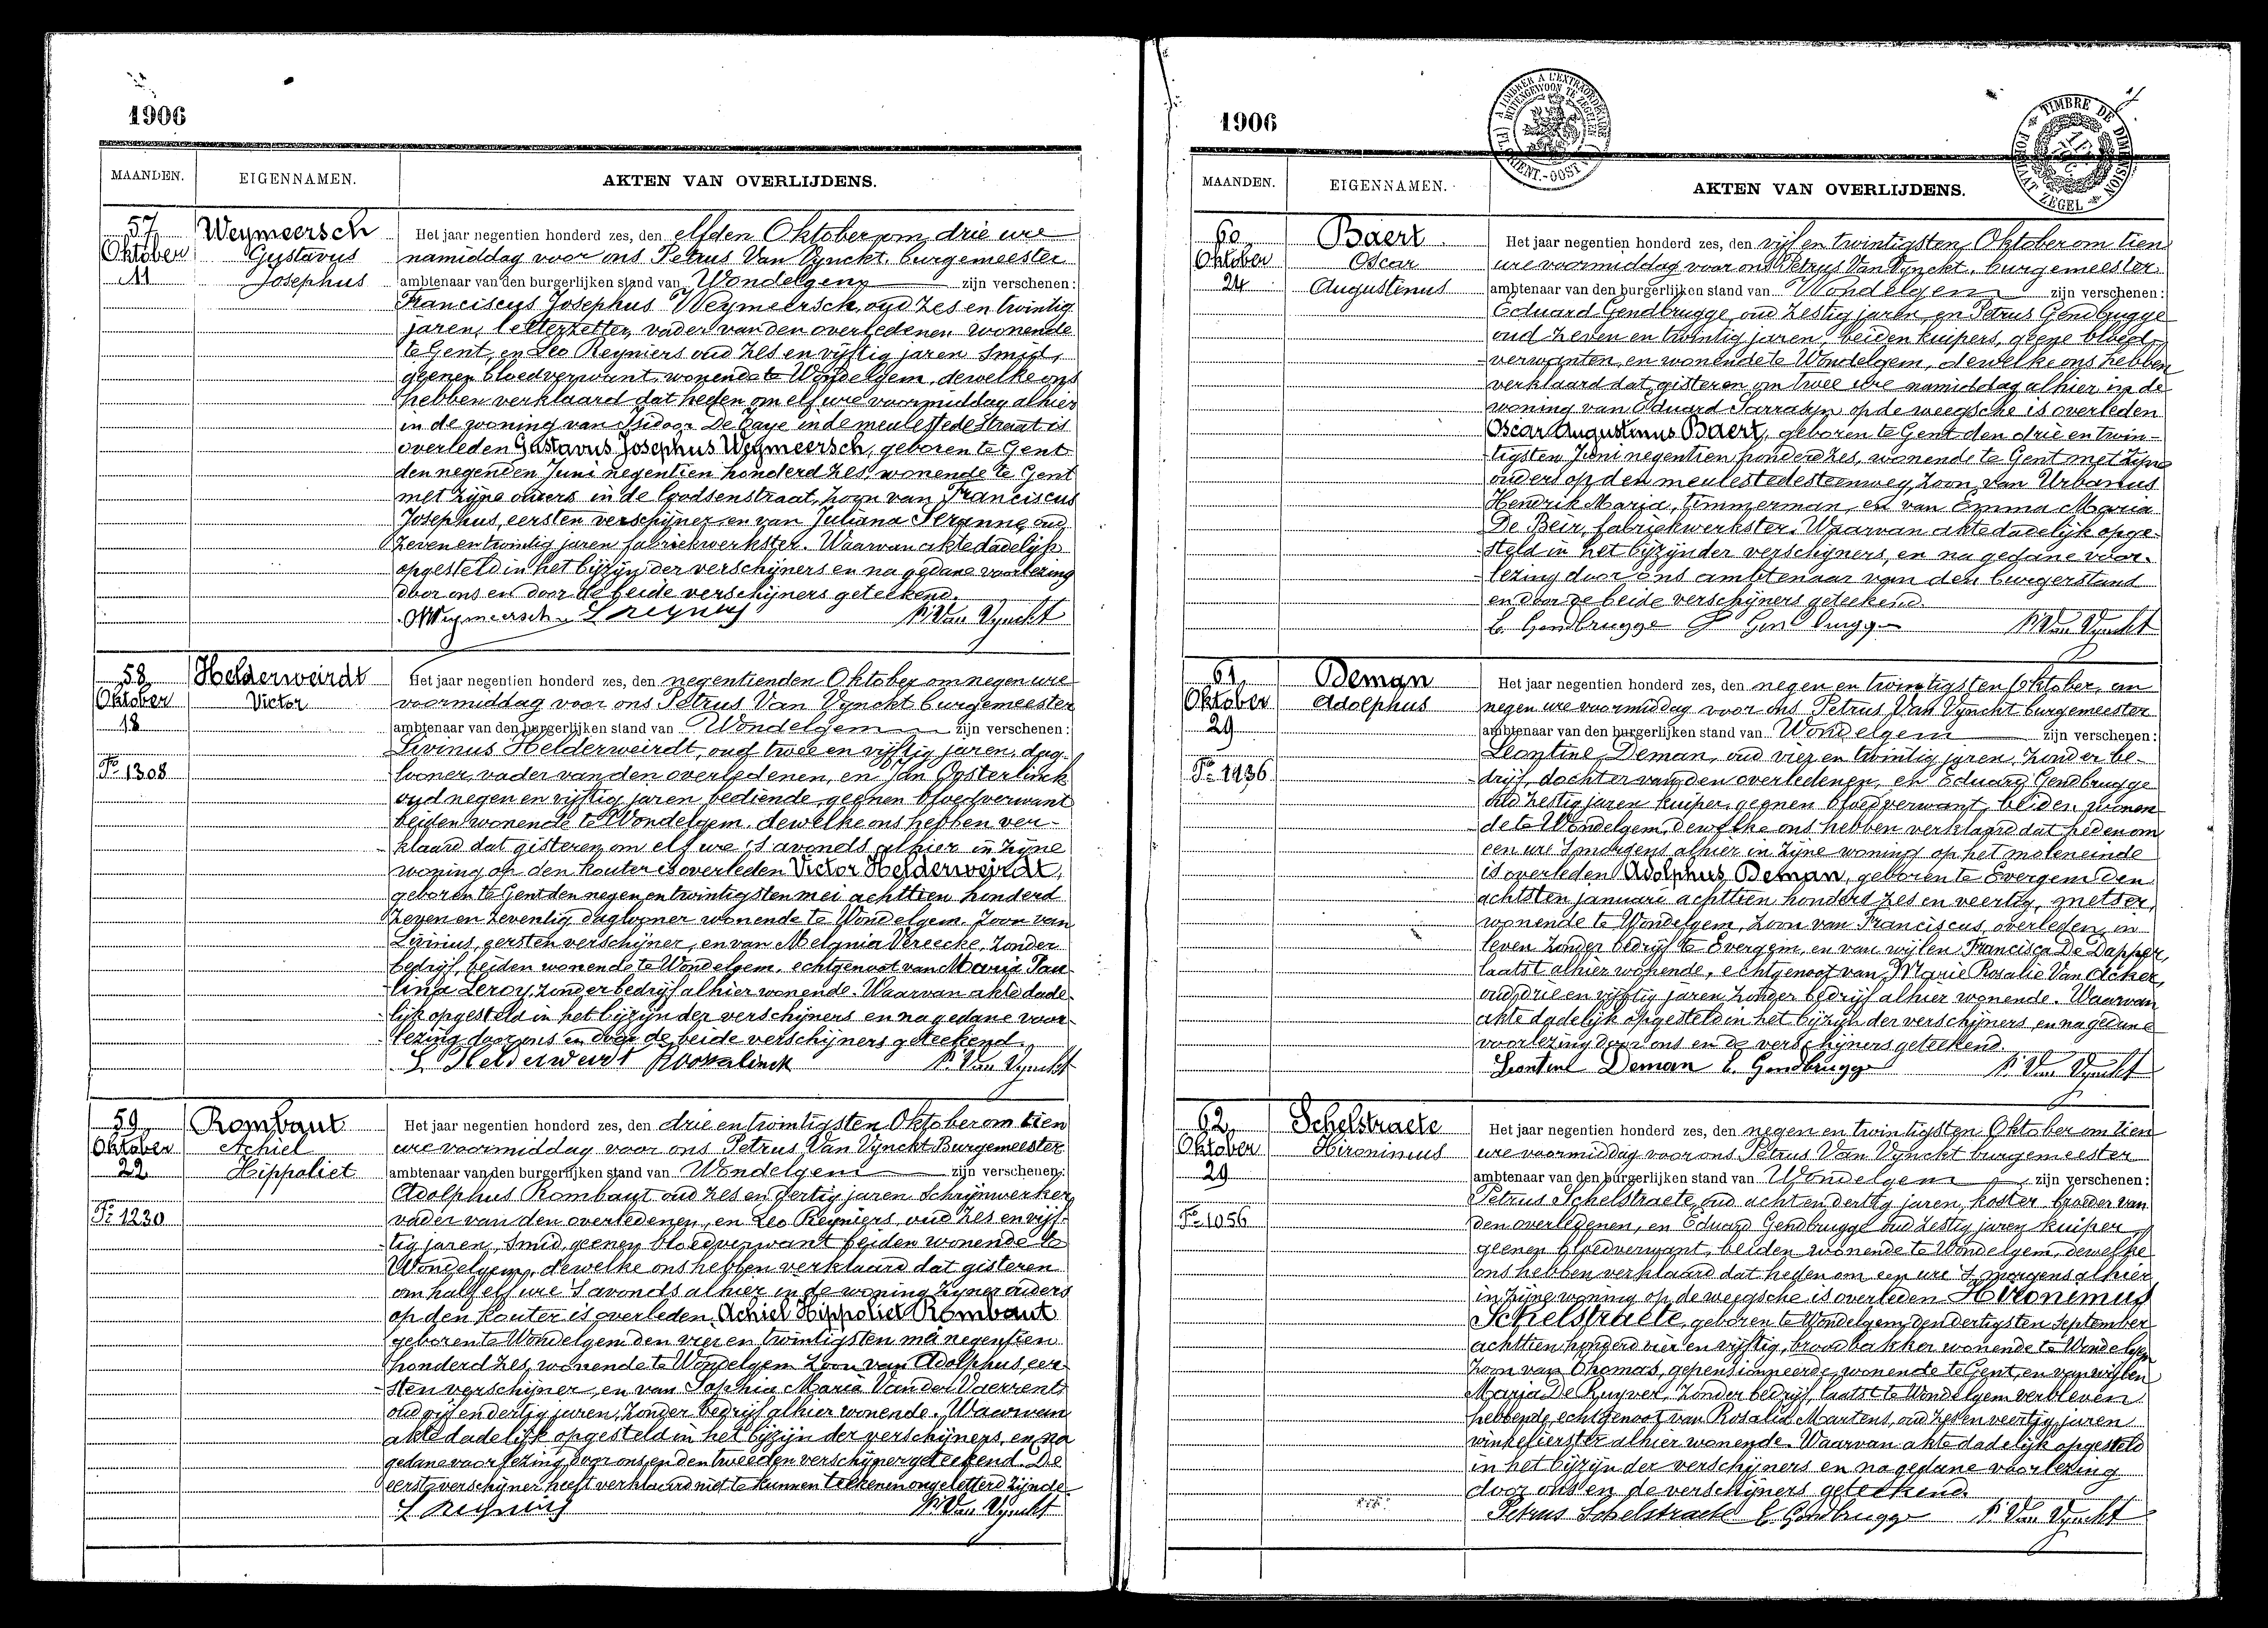 1906
MAANDEN. EIGENNAMEN. AKTEN VAN OVERLIJDENS.
57 Weymeersch Het jaar negentien honderd zes, den elfden Oktober om drie ure
Oktober Gustavus namiddag voor ons Petrus Van Vynckt, burgemeester
11 Josephus ambtenaar van den burgerlijken stand van Wondelgem zijn verschenen:
Franciscus Josephus Weymeersch, oud zes en twintig
jaren, letterzetter, vader van den overledenen wonende
te Gent, en Leo Reyniers oud zes en vijftig jaren smid,
geenen bloedverwant, wonende te Wondelgem, dewelke ons
hebben verklaard dat heden om elf ure voormiddag alhier
in de woning van Isidoor De Caye in de meulestedestraat is
overleden Gustavus Josephus Weymeersch, geboren te Gent
den negenden Juni negentien honderd zes, wonende te Gent
met zijne ouders in de straat, zoon van Franciscus
Josephus, eersten verschijner en van Juliana Seranne oud
zeven en twintig jaren fabriekwerkster. Waarvan akte dadelijk
opgesteld in het bijzijn der verschijners en na gedane voorlezing
door ons en door de beide verschijners geteekend.
Weymeersch L Reyniers P. Van Vynckt
58 Helderweirdt Het jaar negentien honderd zes, den negentienden Oktober om negen ure
Oktober Victor voormiddag voor ons Petrus Van Vynckt burgemeester
18 ambtenaar van den burgerlijken stand van Wondelgem zijn verschenen:
Livinus Helderweirdt, oud twee en vijftig jaren, dag-
No 1308 looner, vader van den overledenen, en Jan Oosterlinck
oud negen en vijftig jaren bediende, geenen bloedverwant
beiden wonende te Wondelgem, dewelke ons hebben ver-
klaard dat gisteren om elf ure 's avonds alhier in zijne
woning op den Kouter is overleden Victor Helderweirdt,
geboren te Gent den negen en twintigsten mei achttien honderd
zeven en zeventig dagloner wonende te Wondelgem, zoon van
Livinus, eersten verschijner, en van Melania Vereecke, zonder
bedrijf, beiden wonende te Wondelgem, echtgenoot van Maria Pau-
lina Leroy, zonder bedrijf alhier wonende. Waarvan akte dade-
lijk opgesteld in het bijzijn der verschijners en na gedane voor-
lezing door ons en door de beide verschijners geteekend.
L Helderweirt P. Van Vynckt
59 Rombaut Het jaar negentien honderd zes, den drie en twintigsten Oktober om tien
Oktober Achiel ure voormiddag voor ons Petrus Van Vynckt Burgemeester
22 Hippoliet ambtenaar van den burgerlijken stand van Wondelgem zijn verschenen:
Adolphus Rombaut oud zes en dertig jaren Schrijnwerker
No 1230 vader van den overledenen, en Leo Reyniers, oud zes en vijf-
tig jaren, smid, geenen bloedverwant beiden wonende te
Wondelgem, dewelke ons hebben verklaard dat gisteren
om half elf ure 's avonds alhier in de woning zijner ouders
op den Kouter is overleden Achiel Hippoliet Rombaut
geboren te Wondelgem den vier en twintigsten mei negentien
honderd zes, wonende te Wondelgem zoon van Adolphus, eer-
sten verschijner, en van Sophia Maria Van der Vaerrent
oud vijf en dertig jaren, zonder bedrijf alhier wonende. Waarvan
akte dadelijk opgesteld in het bijzijn der verschijners, en na
gedane voorlezing door ons en den tweeden verschijner geteekend. De
eerste verschijner heeft verklaard niet te kunnen teekenen ongeletterd zijnde.
L Reyniers P. Van Vynckt
1906
MAANDEN. EIGENNAMEN. AKTEN VAN OVERLIJDENS.
TIMBRE DE DIMENSION FORMAAT ZEGEL
60 Baert Het jaar negentien honderd zes, den vijf en twintigsten Oktober om tien
Oktober Oscar ure voormiddag voor ons Petrus Van Vynckt, burgemeester
24 Augustinus ambtenaar van den burgerlijken stand van Wondelgem zijn verschenen:
Eduard Gendbrugge, oud zestig jaren en Petrus Gendbrugge
oud zeven en twintig jaren, beiden kuipers, geene bloed-
verwanten, en wonende te Wondelgem, dewelke ons hebben
verklaard dat gisteren om twee ure namiddag alhier in de
woning van Eduard Sarrazijn op de weegsche is overleden
Oscar Augustinus Baert, geboren te Gent den drie en twin-
tigsten Juni negentien honderd zes, wonende te Gent met zijne
ouders op den meulestedesteenweg, zoon van Urbanus
Hendrik Maria, timmerman, en van Emma Maria
De Beir, fabriekwerkster. Waarvan akte dadelijk opge-
steld in het bijzijn der verschijners, en na gedane voor-
lezing door ons ambtenaar van den burgerstand
en door de beide verschijners geteekend.
E. Gendbrugge P Gendbrugge P. Van Vynckt
61 Deman Het jaar negentien honderd zes, den negen en twintigsten Oktober, om
Oktober Adolphus negen ure voormiddag voor ons Petrus Van Vynckt burgemeester
29 ambtenaar van den burgerlijken stand van Wondelgem zijn verschenen:
Leontine Deman, oud vier en twintig jaren, zonder be-
No 1436 drijf, dochter van den overledenen, en Eduard Gendbrugge
oud zestig jaren kuiper, geenen bloedverwant, beiden wonen-
de te Wondelgem, dewelke ons hebben verklaard dat heden om
een ure 's morgens alhier in zijne woning op het moleneinde
is overleden Adolphus Deman, geboren te Evergem den
achtsten januari achttien honderd zes en veertig, metser,
wonende te Wondelgem, zoon van Franciscus, overleden, in
leven zonder bedrijf te Evergem, en van wijlen Francisca De Dapper,
laatst alhier wonende, echtgenoot van Marie Rosalie Van Acker,
oud drie en vijftig jaren zonder bedrijf alhier wonende. Waarvan
akte dadelijk opgesteld in het bijzijn der verschijners, en na gedane
voorlezing door ons en de verschijners geteekend.
Leontine Deman E. Gendbrugge P. Van Vynckt
62 Schelstraete Het jaar negentien honderd zes, den negen en twintigsten Oktober om tien
Oktober Hironimus ure voormiddag voor ons Petrus Van Vynckt burgemeester
29 ambtenaar van den burgerlijken stand van Wondelgem zijn verschenen:
Petrus Schelstraete, oud acht en dertig jaren, koster, broeder van
No 1056 den overledenen, en Eduard Gendbrugge oud zestig jaren kuiper
geenen bloedverwant, beiden wonende te Wondelgem, dewelke
ons hebben verklaard dat heden om een ure 's morgens alhier
in zijne woning op de weegsche is overleden Hironimus
Schelstraete, geboren te Wondelgem, den dertigsten September
achttien honderd vier en vijftig, broodbakker wonende te Wondelgem
zoon van Thomas, gepensionneerde, wonende te Gent, en van wijlen
Maria De Ruyver, zonder bedrijf, laatst te Wondelgem verbleven
hebbende, echtgenoot van Rosalia Martens, oud zes en veertig jaren
winkelierster alhier wonende. Waarvan akte dadelijk opgesteld
in het bijzijn der verschijners en na gedane voorlezing
door ons en de verschijners geteekend.
Petrus Schelstraete E. Gendbrugge P. Van Vynckt